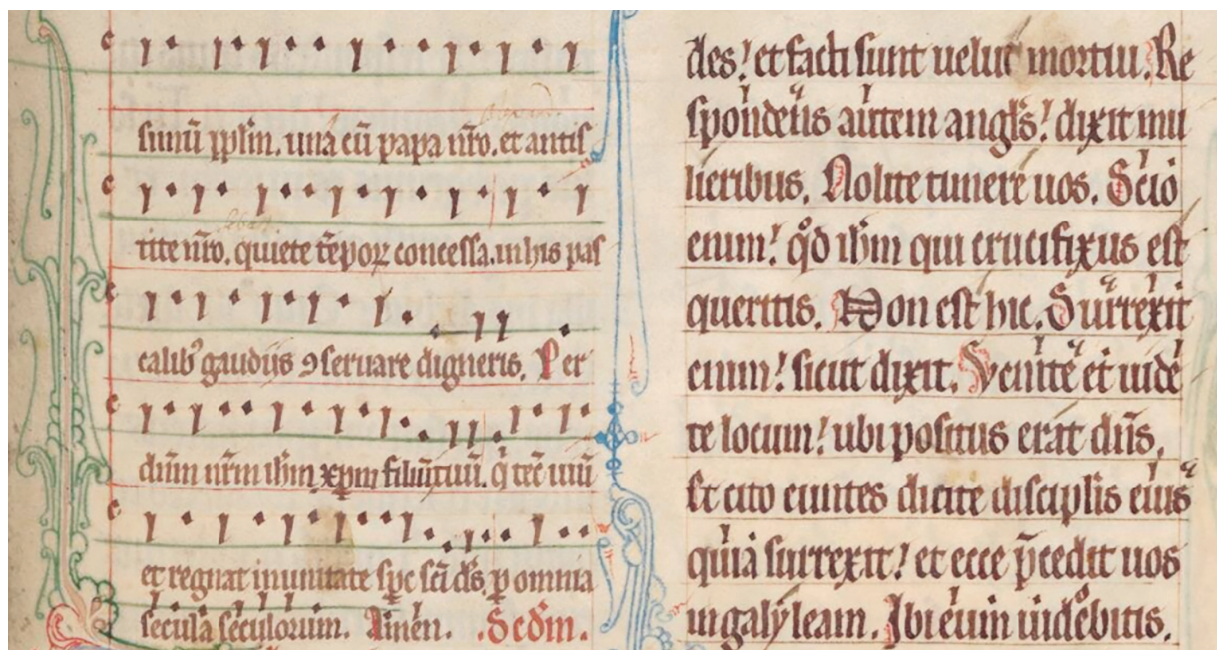 simū ip̄lm. una cū papa nr̄o. et antis
tite nr̄o. quiete tēporꝝ concessa. in his pas
calib᾽ gaudijs ꝯseruare digneris. Per
dūm nr̄m ihm̄ xp̄m filiū tuū. q̇ tec̄ uiuit
et regnat in unitate sp̄c sc̄i ds̄. ꝑ omnia
secula seculorum. Amen. .Sedm̄.
des! et facti sunt uelut mortui. Re
spondens autem angls̄! dixit mu
lieribus. Nolite timere uos. Scio
enim! qđ ihm̄ qui crucifixus est
queritis. Non est hic. Surrexit
enim! sicut dixit. Venite et uide
te locum! ubi positus erat dn̄s.
Et cito euntes dicite discipl̄is eius
quia surrexit! et ecce p̄cedit uos
in galyleam. Ibi eum uidebitis.